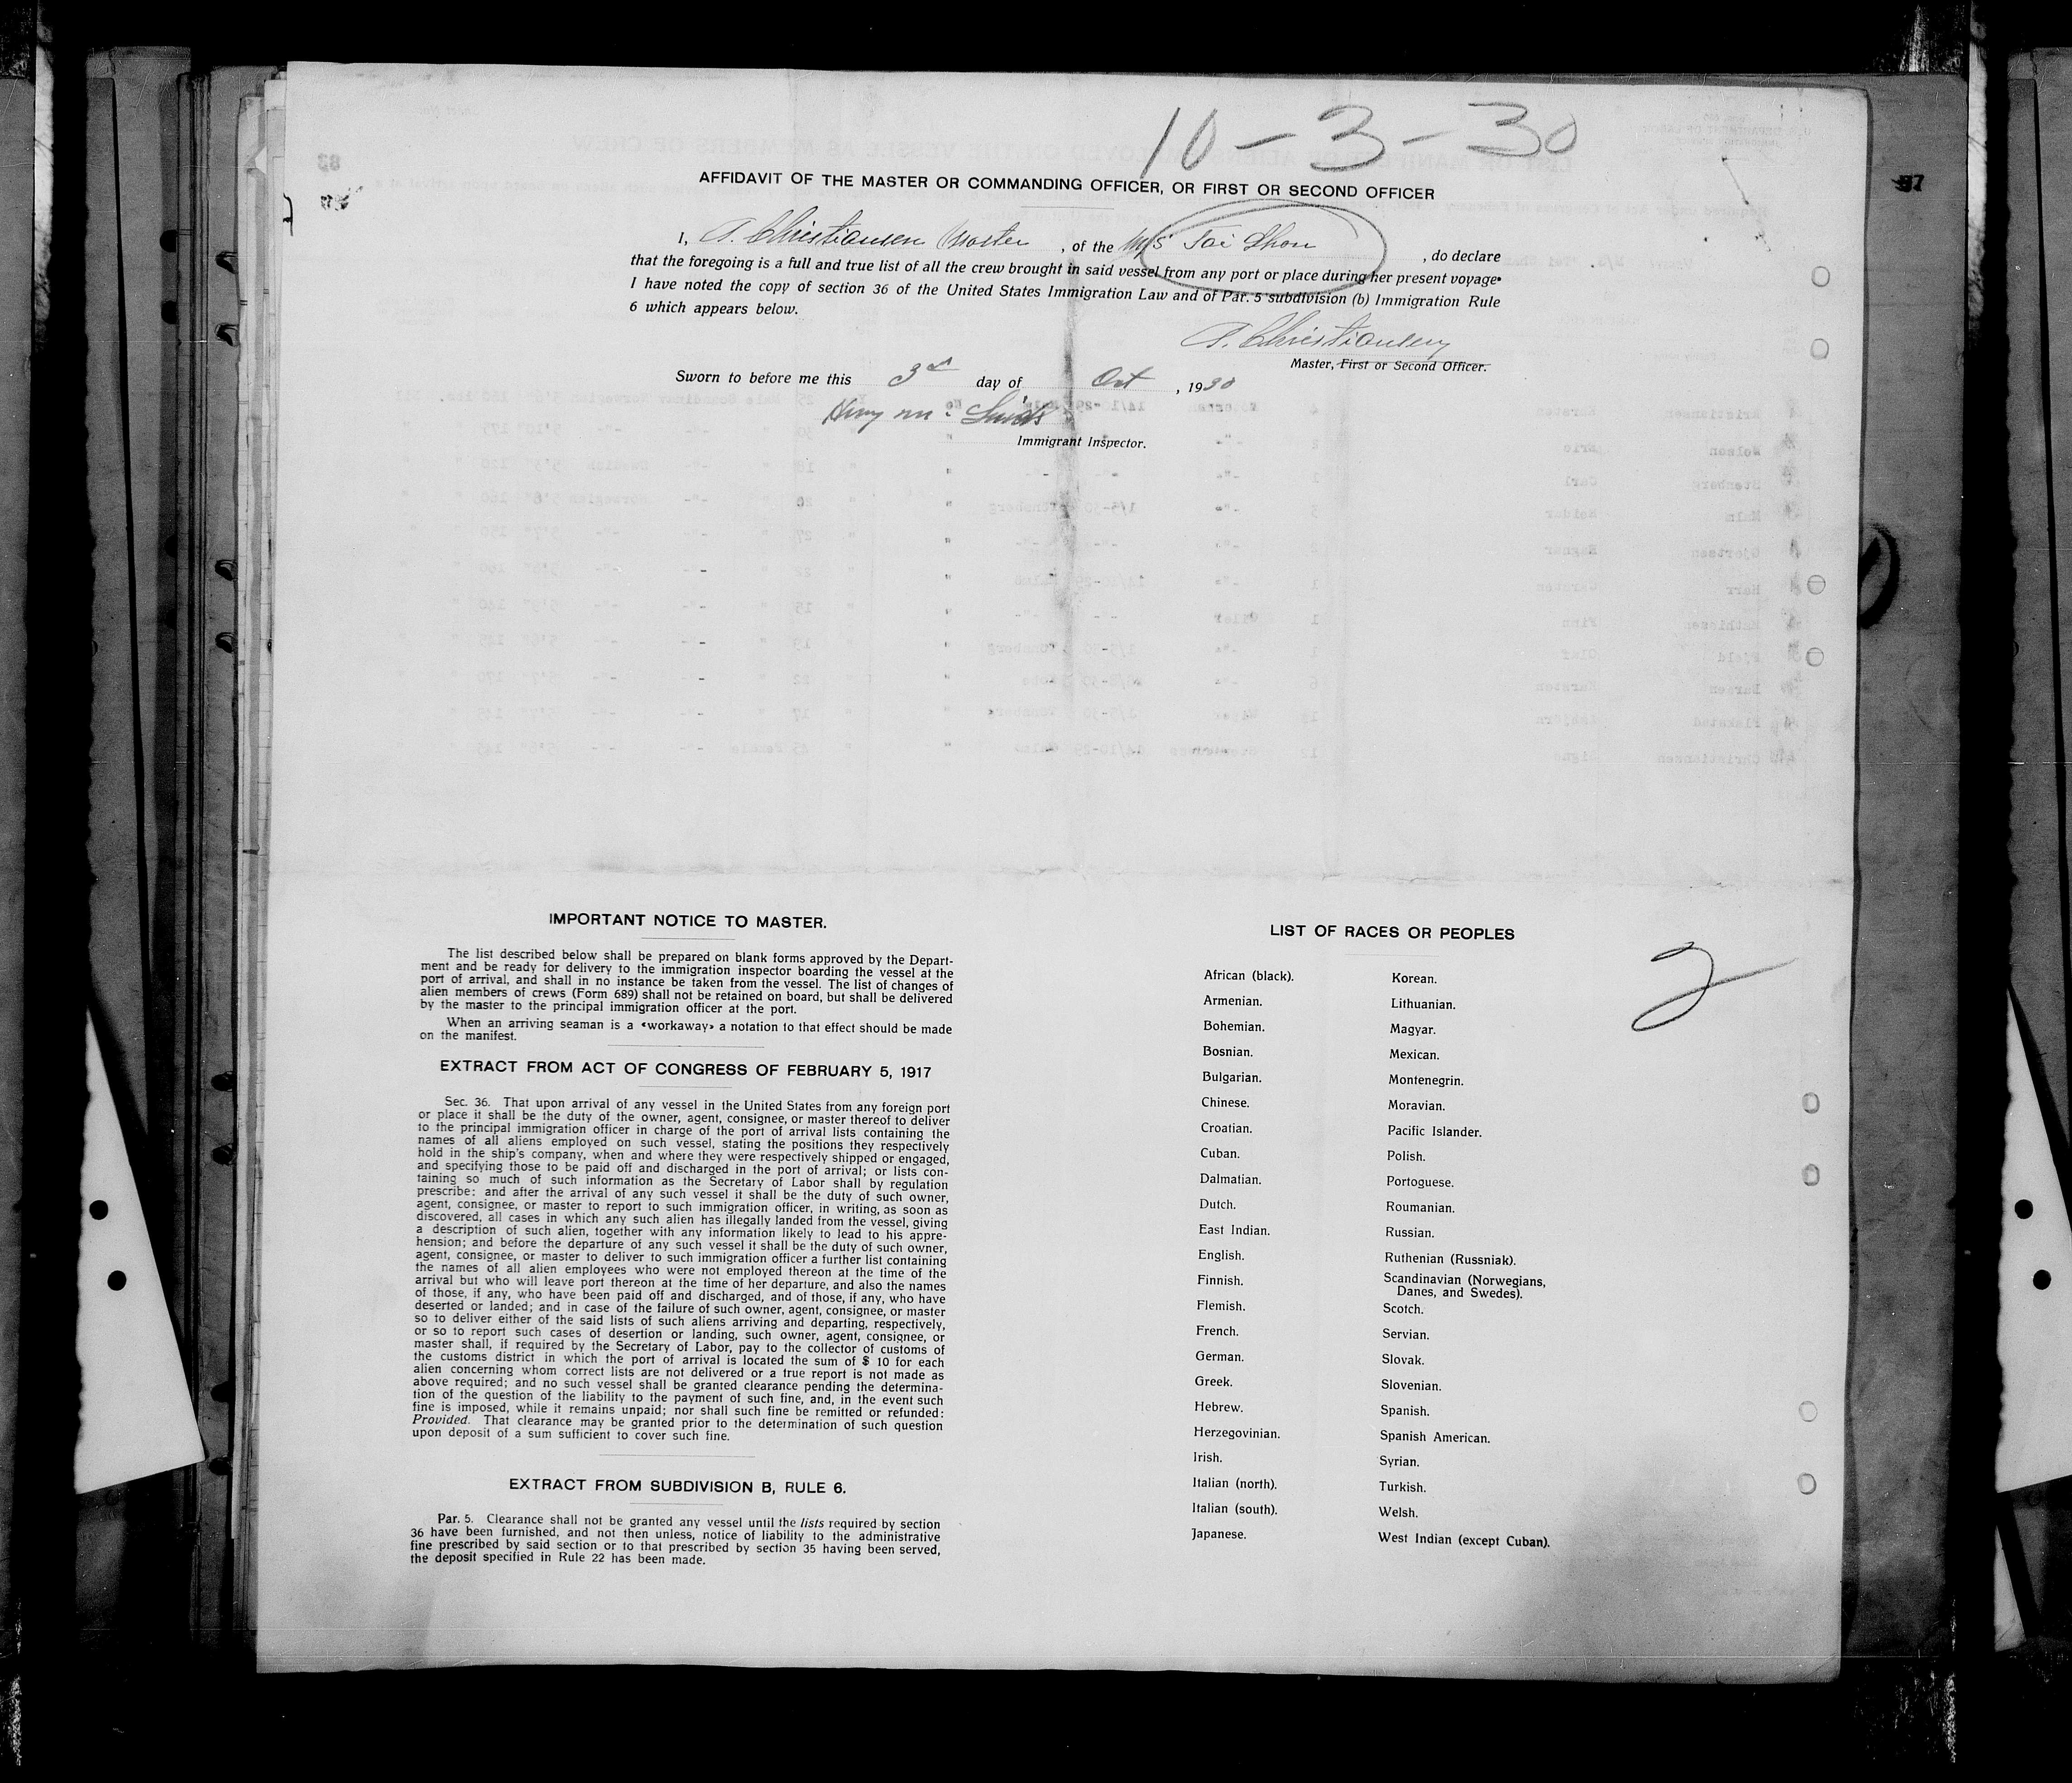 10-3-30
AFFIDAVIT OF THE MASTER OR COMMANDING OFFICER, OR FIRST OR SECOND OFFICER
I, A. Christiansen Master , of the M/S Tai Shan , do declare
that the foregoing is a full and true list of all the crew brought in said vessel from any port or place during her present voyage.
I have noted the copy of section 36 of the United States Immigration Law and of Par. 5 subdivision (b) Immigration Rule
6 which appears below.
A. Christiansen
Master, First or Second Officer.
Sworn to before me this 3rd day of Oct , 1930
Immigrant Inspector.
IMPORTANT NOTICE TO MASTER.
The list described below shall be prepared on blank forms approved by the Depart-
ment and be ready for delivery to the immigration inspector boarding the vessel at the
port of arrival, and shall in no instance be taken from the vessel. The list of changes of
alien members of crews (Form 689) shall not be retained on board, but shall be delivered
by the master to the principal immigration officer at the port.
When an arriving seaman is a «workaway» a notation to that effect should be made
on the manifest.
EXTRACT FROM ACT OF CONGRESS OF FEBRUARY 5, 1917
Sec. 36. That upon arrival of any vessel in the United States from any foreign port
or place it shall be the duty of the owner, agent, consignee, or master thereof to deliver
to the principal immigration officer in charge of the port of arrival lists containing the
names of all aliens employed on such vessel, stating the positions they respectively
hold in the ship's company, when and where they were respectively shipped or engaged,
and specifying those to be paid off and discharged in the port of arrival; or lists con-
taining so much of such information as the Secretary of Labor shall by regulation
prescribe; and after the arrival of any such vessel it shall be the duty of such owner,
agent, consignee, or master to report to such immigration officer, in writing, as soon as
discovered, all cases in which any such alien has illegally landed from the vessel, giving
a description of such alien, together with any information likely to lead to his appre-
hension; and before the departure of any such vessel it shall be the duty of such owner,
agent, consignee, or master to deliver to such immigration officer a further list containing
the names of all alien employees who were not employed thereon at the time of the
arrival but who will leave port thereon at the time of her departure, and also the names
of those, if any, who have been paid off and discharged, and of those, if any, who have
deserted or landed; and in case of the failure of such owner, agent, consignee, or master
so to deliver either of the said lists of such aliens arriving and departing, respectively,
or so to report such cases of desertion or landing, such owner, agent, consignee, or
master shall, if required by the Secretary of Labor, pay to the collector of customs of
the customs district in which the port of arrival is located the sum of $ 10 for each
alien concerning whom correct lists are not delivered or a true report is not made as
above required; and no such vessel shall be granted clearance pending the determina-
tion of the question of the liability to the payment of such fine, and, in the event such
fine is imposed, while it remains unpaid; nor shall such fine be remitted or refunded:
Provided. That clearance may be granted prior to the determination of such question
upon deposit of a sum sufficient to cover such fine.
EXTRACT FROM SUBDIVISION B, RULE 6.
Par. 5. Clearance shall not be granted any vessel until the lists required by section
36 have been furnished, and not then unless, notice of liability to the administrative
fine prescribed by said section or to that prescribed by section 35 having been served,
the deposit specified in Rule 22 has been made.
LIST OF RACES OR PEOPLES
2
African (black).
Armenian.
Bohemian.
Bosnian.
Bulgarian.
Chinese.
Croatian.
Cuban.
Dalmatian.
Dutch.
East Indian.
English.
Finnish.
Flemish.
French.
German.
Greek.
Hebrew.
Herzegovinian.
Irish.
Italian (north).
Italian (south).
Japanese.
Korean.
Lithuanian.
Magyar.
Mexican.
Montenegrin.
Moravian.
Pacific Islander.
Polish.
Portoguese.
Roumanian.
Russian.
Ruthenian (Russniak).
Scandinavian (Norwegians,
Danes, and Swedes).
Scotch.
Servian.
Slovak.
Slovenian.
Spanish.
Spanish American.
Syrian.
Turkish.
Welsh.
West Indian (except Cuban).